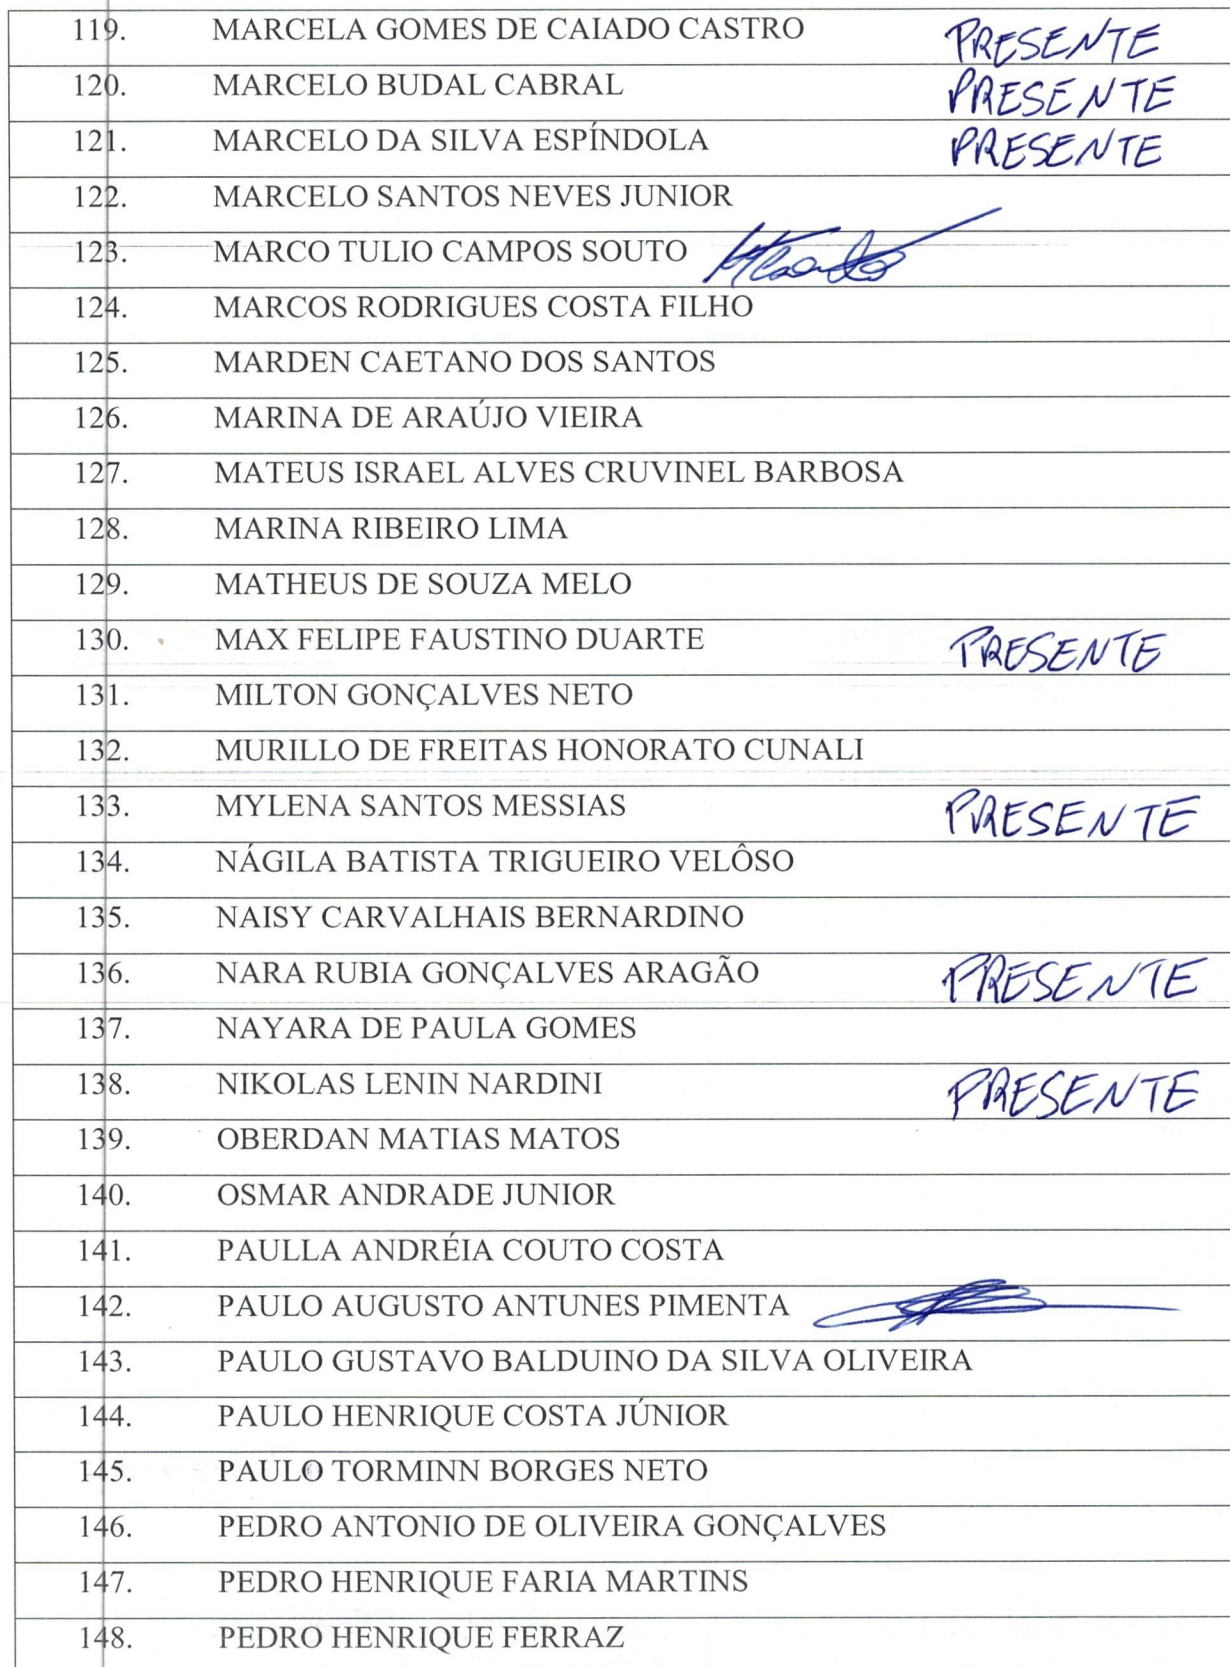 119. MARCELA GOMES DE CAIADO CASTRO PRESENTE
120. MARCELO BUDAL CABRAL PRESENTE
121. MARCELO DA SILVA ESPÍNDOLA PRESENTE
122. MARCELO SANTOS NEVES JUNIOR
123. MARCO TULIO CAMPOS SOUTO
124. MARCOS RODRIGUES COSTA FILHO
125. MARDEN CAETANO DOS SANTOS
126. MARINA DE ARAÚJO VIEIRA
127. MATEUS ISRAEL ALVES CRUVINEL BARBOSA
128. MARINA RIBEIRO LIMA
129. MATHEUS DE SOUZA MELO
130. MAX FELIPE FAUSTINO DUARTE PRESENTE
131. MILTON GONÇALVES NETO
132. MURILLO DE FREITAS HONORATO CUNALI
133. MYLENA SANTOS MESSIAS PRESENTE
134. NÁGILA BATISTA TRIGUEIRO VELÔSO
135. NAISY CARVALHAIS BERNARDINO
136. NARA RUBIA GONÇALVES ARAGÃO PRESENTE
137. NAYARA DE PAULA GOMES
138. NIKOLAS LENIN NARDINI PRESENTE
139. OBERDAN MATIAS MATOS
140. OSMAR ANDRADE JUNIOR
141. PAULLA ANDRÉIA COUTO COSTA
142. PAULO AUGUSTO ANTUNES PIMENTA
143. PAULO GUSTAVO BALDUINO DA SILVA OLIVEIRA
144. PAULO HENRIQUE COSTA JÚNIOR
145. PAULO TORMINN BORGES NETO
146. PEDRO ANTONIO DE OLIVEIRA GONÇALVES
147. PEDRO HENRIQUE FARIA MARTINS
148. PEDRO HENRIQUE FERRAZ